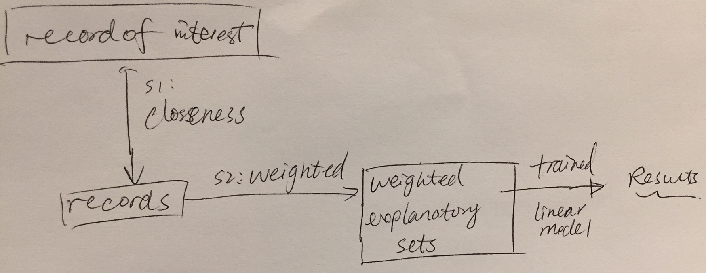 record of interest
S1:
closeness
records
S2: weighted
weighted
explanatory
sets
trained
linear
model
Results